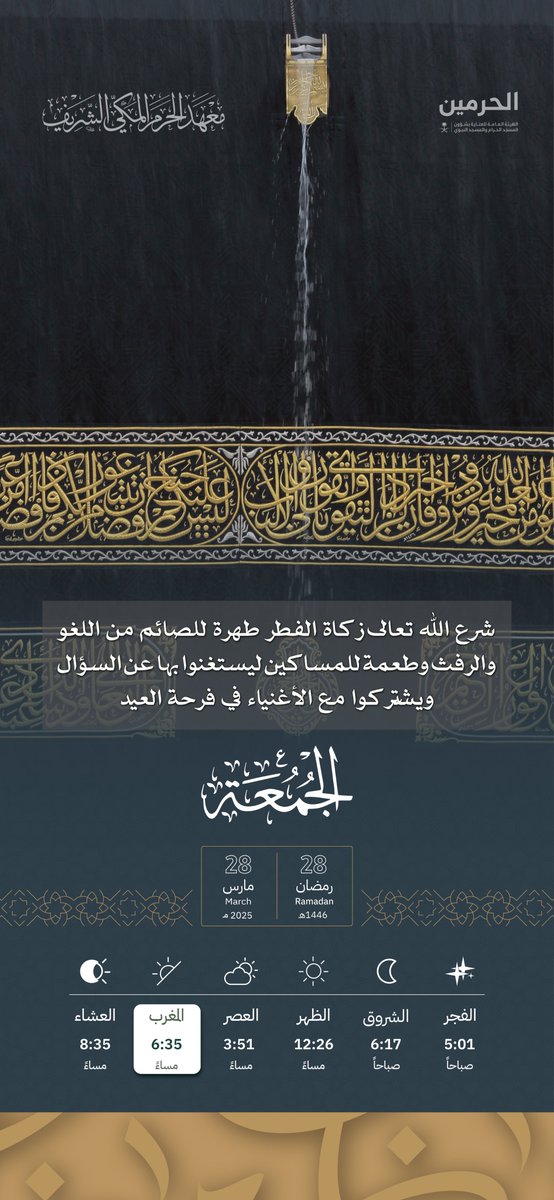 الحرمين
الهيئة العامة للعناية بشؤون
المسجد الحرام والمسجد النبوي
معهد الحرم المكي الشريف
شرع الله تعالى زكاة الفطر طهرة للصائم من اللغو
والرفث وطعمة للمساكين ليستغنوا بها عن السؤال
ويشتركوا مع الأغنياء في فرحة العيد
الجُمُعَة
28 28
رمضان مارس
Ramadan March
1446هـ 2025 مـ
الفجر الشروق الظهر العصر المغرب العشاء
5:01 6:17 12:26 3:51 6:35 8:35
صباحاً صباحاً مساءً مساءً مساءً مساءً